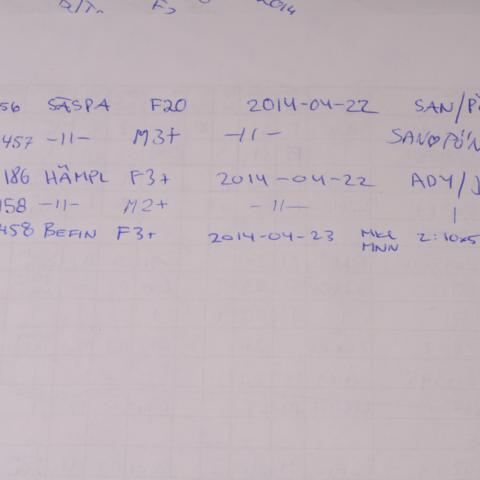 2014
56 SÄSPA F20 2014-04-22 SAN/
457 -11- M3+ -11-
186 HÄMPL F3+ 2014-04-22 ADY/J
158 -11- M2+ -11- 1
458 BEFIN F3+ 2014-04-23 MKL 2:10x5
MNN